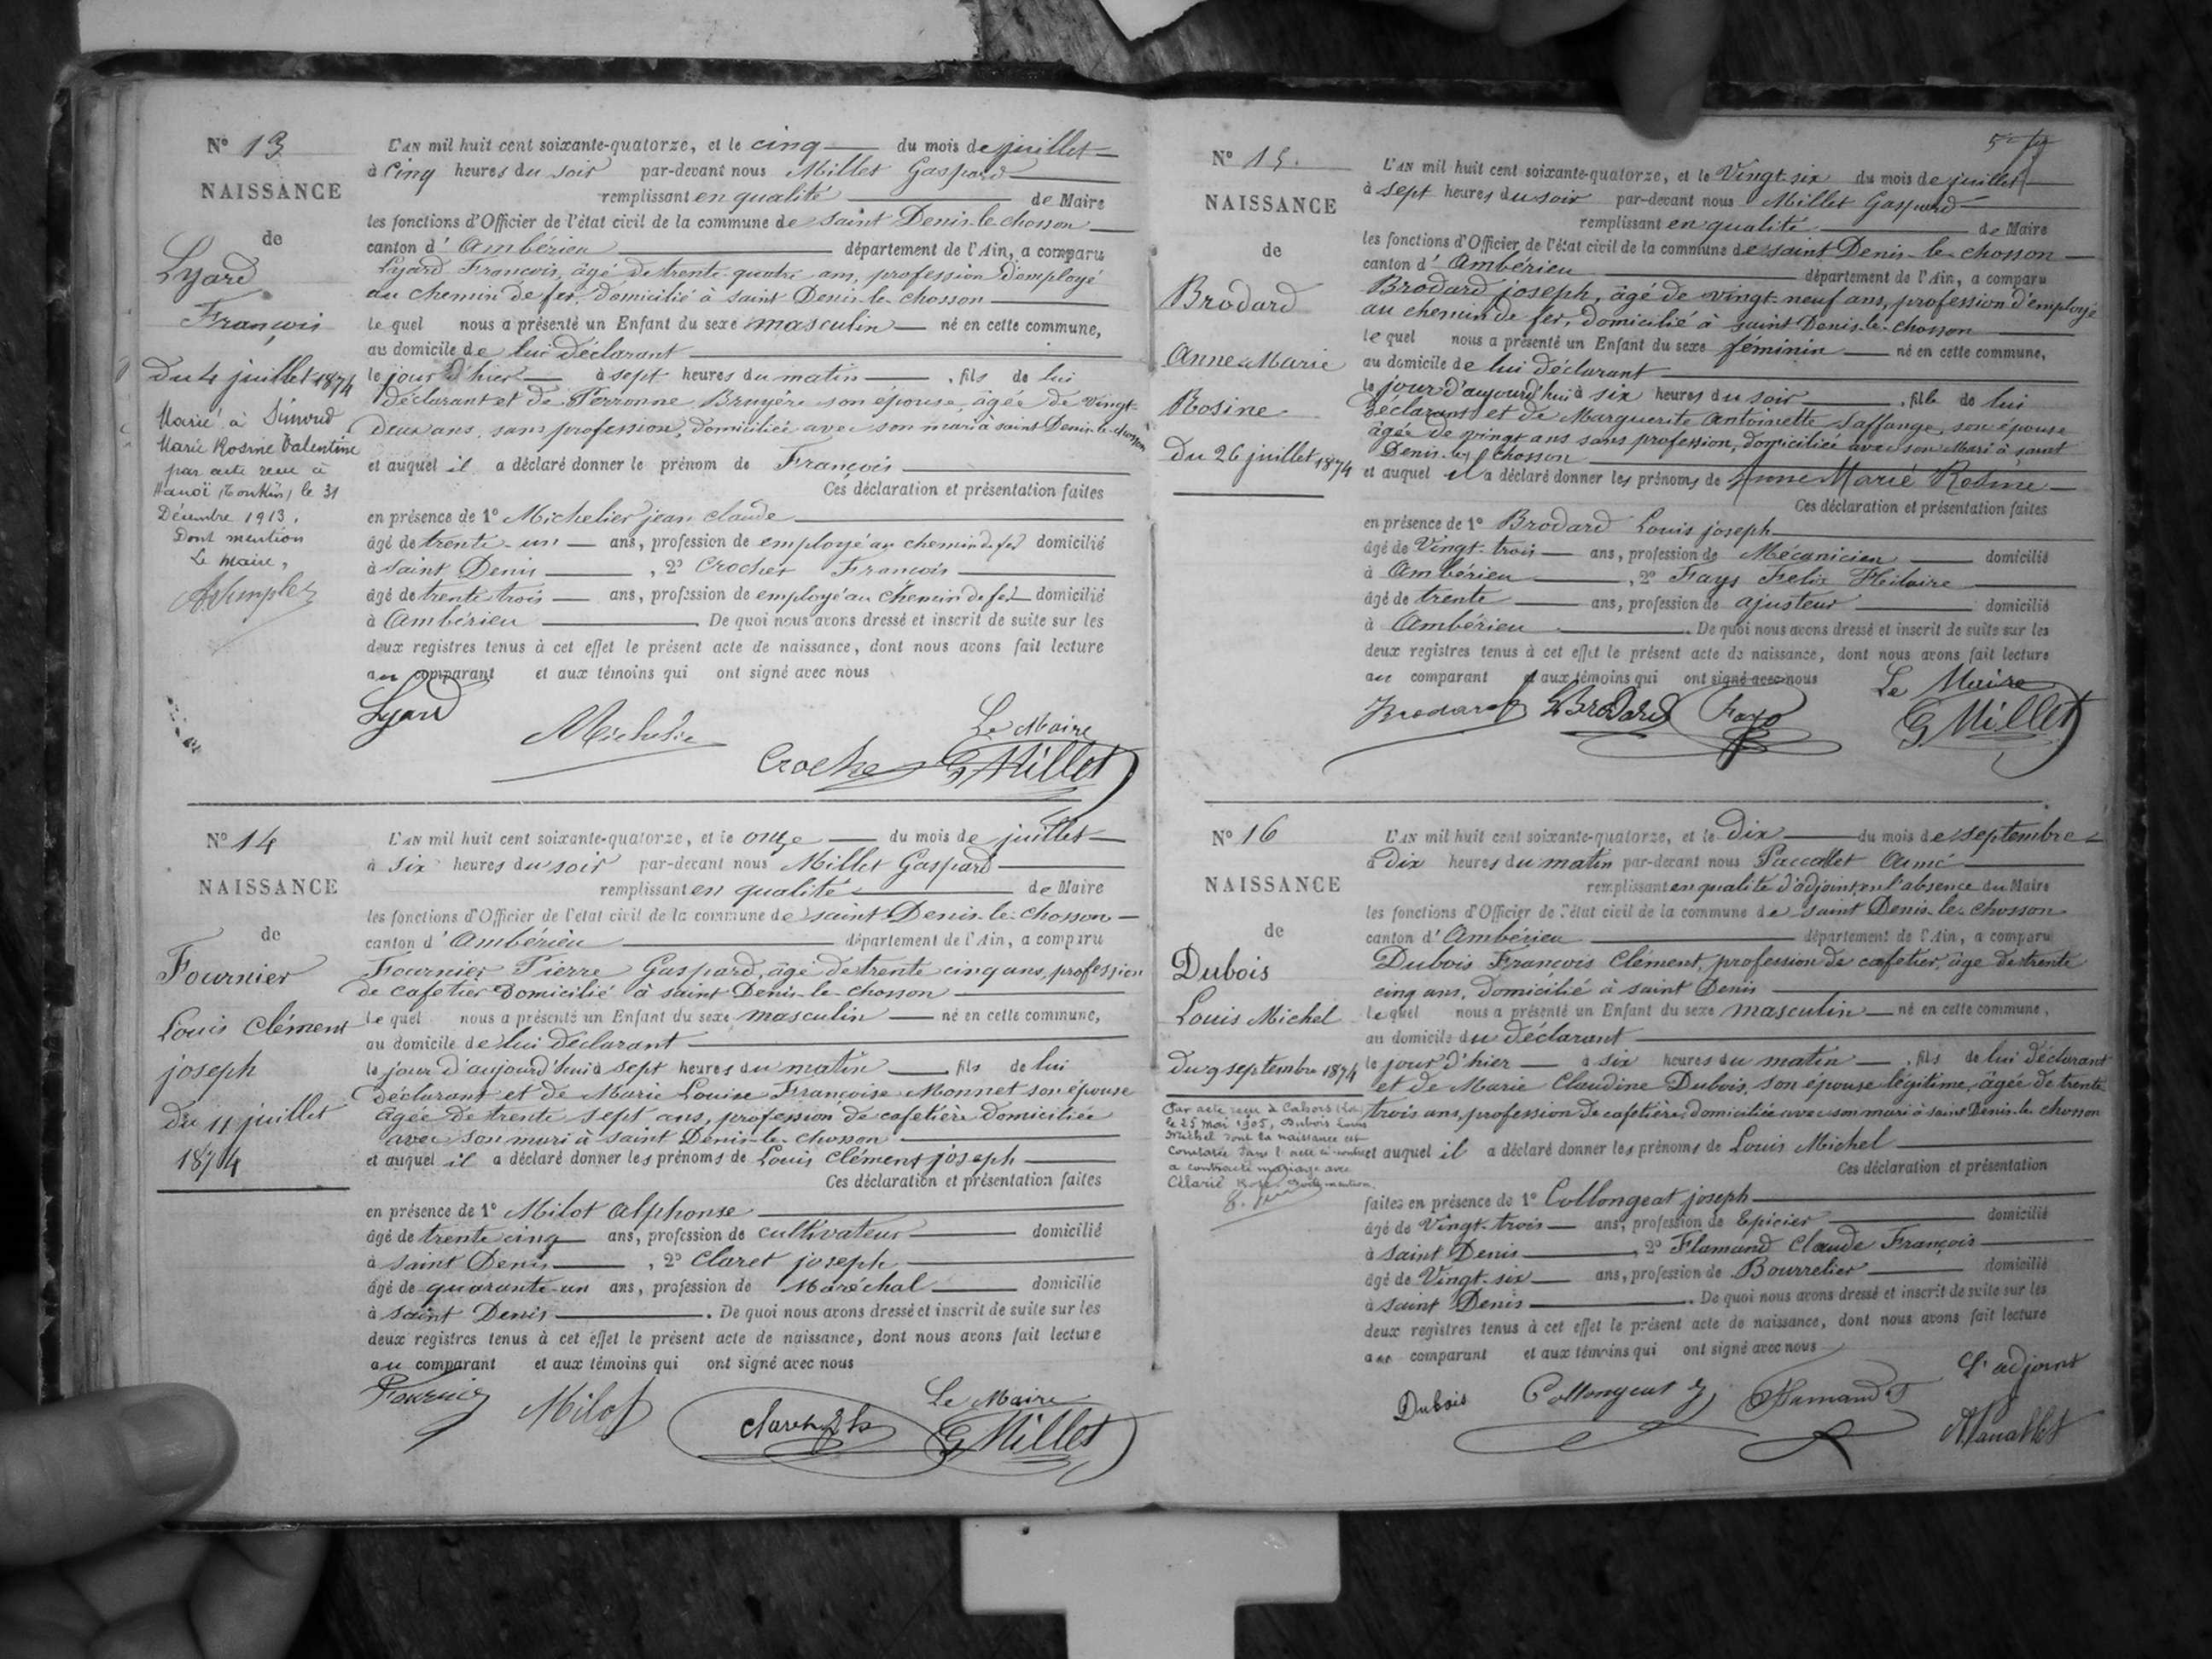 N° 13
NAISSANCE
de
Lyard
François
Du 4 juillet 1874
Marié à
Marie Rosine Valentine
par acte reçu à
Hanoï (Tonkin) le 31
Décembre 1913.
Dont mention
Le Maire,
L'AN mil huit cent soixante-quatorze, et le cinq du mois de juillet
à Cinq heures du soir par-devant nous Millet Gaspard
remplissant en qualité de Maire
les fonctions d'Officier de l'état civil de la commune de saint Denis-le-chosson
canton d'Ambérieu département de l'Ain, a comparu
Lyard François, âgé de trente-quatre ans, profession d'employé
au chemin de fer, domicilié à saint Denis-le-chosson
le quel nous a présenté un Enfant du sexe masculin né en cette commune,
au domicile de lui déclarant
le jour d'hier à sept heures du matin, fils de lui
déclarant et de Perronne Bruyère son épouse, âgée de vingt-
deux ans, sans profession, domiciliée avec son mari à saint Denis-le-chosson
et auquel il a déclaré donner le prénom de François
Ces déclaration et présentation faites
en présence de 1° Michelier jean claude
âgé de trente-un ans, profession de employé au chemin de fer domicilié
à saint Denis, 2° Crochet François
âgé de trente trois ans, profession de employé au chemin de fer domicilié
à Ambérieu. De quoi nous avons dressé et inscrit de suite sur les
deux registres tenus à cet effet le présent acte de naissance, dont nous avons fait lecture
au comparant et aux témoins qui ont signé avec nous
Lyard
Michelier
Crochet
Le Maire
G Millet
N° 14
NAISSANCE
de
Fournier
Louis Clément
joseph
Du 11 juillet
1874
L'AN mil huit cent soixante-quatorze, et le onze du mois de juillet
à six heures du soir par-devant nous Millet Gaspard
remplissant en qualité de Maire
les fonctions d'Officier de l'état civil de la commune de saint Denis-le-chosson
canton d'Ambérieu département de l'Ain, a comparu
Fournier Pierre Gaspard, âgé de trente cinq ans, profession
de cafetier domicilié à saint Denis-le-chosson
le quel nous a présenté un Enfant du sexe masculin né en cette commune,
au domicile de lui déclarant
le jour d'aujourd'hui à sept heures du matin, fils de lui
déclarant et de Marie Louise Françoise Monnet son épouse
âgée de trente sept ans, profession de cafetière domiciliée
avec son mari à saint Denis-le-chosson
et auquel il a déclaré donner les prénoms de Louis Clément joseph
Ces déclaration et présentation faites
en présence de 1° Milot Alphonse
âgé de trente cinq ans, profession de cultivateur domicilié
à saint Denis, 2° Claret joseph
âgé de quarante-un ans, profession de Maréchal domicilié
à saint Denis. De quoi nous avons dressé et inscrit de suite sur les
deux registres tenus à cet effet le présent acte de naissance, dont nous avons fait lecture
au comparant et aux témoins qui ont signé avec nous
Fournier
Milot
Claret
Le Maire
G Millet
N° 15.
NAISSANCE
de
Brodard
Anne Marie
Rosine
Du 26 juillet 1874
L'AN mil huit cent soixante-quatorze, et le Vingt-six du mois de juillet
à sept heures du soir par-devant nous Millet Gaspard
remplissant en qualité de Maire
les fonctions d'Officier de l'état civil de la commune de saint Denis-le-chosson
canton d'Ambérieu département de l'Ain, a comparu
Brodard joseph, âgé de vingt-neuf ans, profession d'employé
au chemin de fer, domicilié à saint Denis-le-chosson
le quel nous a présenté un Enfant du sexe féminin né en cette commune,
au domicile de lui déclarant
le jour d'aujourd'hui à six heures du soir, fille de lui
déclarant et de Marguerite Antoinette Saffange, son épouse
âgée de vingt ans sans profession, domiciliée avec son Mari à saint
Denis-le-chosson
et auquel il a déclaré donner les prénoms de Anne Marie Rosine
Ces déclaration et présentation faites
en présence de 1° Brodard Louis joseph
âgé de Vingt-trois ans, profession de Mécanicien domicilié
à Ambérieu, 2° Fays Felix Hilaire
âgé de trente ans, profession de ajusteur domicilié
à Ambérieu. De quoi nous avons dressé et inscrit de suite sur les
deux registres tenus à cet effet le présent acte de naissance, dont nous avons fait lecture
au comparant et aux témoins qui ont signé avec nous
Brodard
L Brodard
Fays
Le Maire
G Millet
N° 16
NAISSANCE
de
Dubois
Louis Michel
Du 9 septembre 1874
Par acte reçu à Cahors (Lot)
le 25 Mai 1905, Dubois Louis
Michel dont la naissance est
constatée dans l'acte ci-contre
a contracté mariage avec
mention
L'AN mil huit cent soixante-quatorze, et le dix du mois de septembre
à Dix heures du matin par-devant nous Paccallet Aimé
remplissant en qualité d'adjoint en l'absence du Maire
les fonctions d'Officier de l'état civil de la commune de saint Denis-le-chosson
canton d'Ambérieu département de l'Ain, a comparu
Dubois François Clément, profession de cafetier, âgé de trente
cinq ans, domicilié à saint Denis
le quel nous a présenté un Enfant du sexe masculin né en cette commune,
au domicile du déclarant
le jour d'hier à six heures du matin, fils de lui déclarant
et de Marie Claudine Dubois, son épouse légitime, âgée de trente
trois ans, profession de cafetière, domiciliée avec son mari à saint Denis-le-chosson
et auquel il a déclaré donner les prénoms de Louis Michel
Ces déclaration et présentation
faites en présence de 1° Collongeat joseph
âgé de Vingt-trois ans, profession de Epicier domicilié
à saint Denis, 2° Flamand Claude François
âgé de Vingt-six ans, profession de Bourrelier domicilié
à saint Denis. De quoi nous avons dressé et inscrit de suite sur les
deux registres tenus à cet effet le présent acte de naissance, dont nous avons fait lecture
au comparant et aux témoins qui ont signé avec nous
Dubois
Collongeat J
Flamand F
L'adjoint
A Paccallet